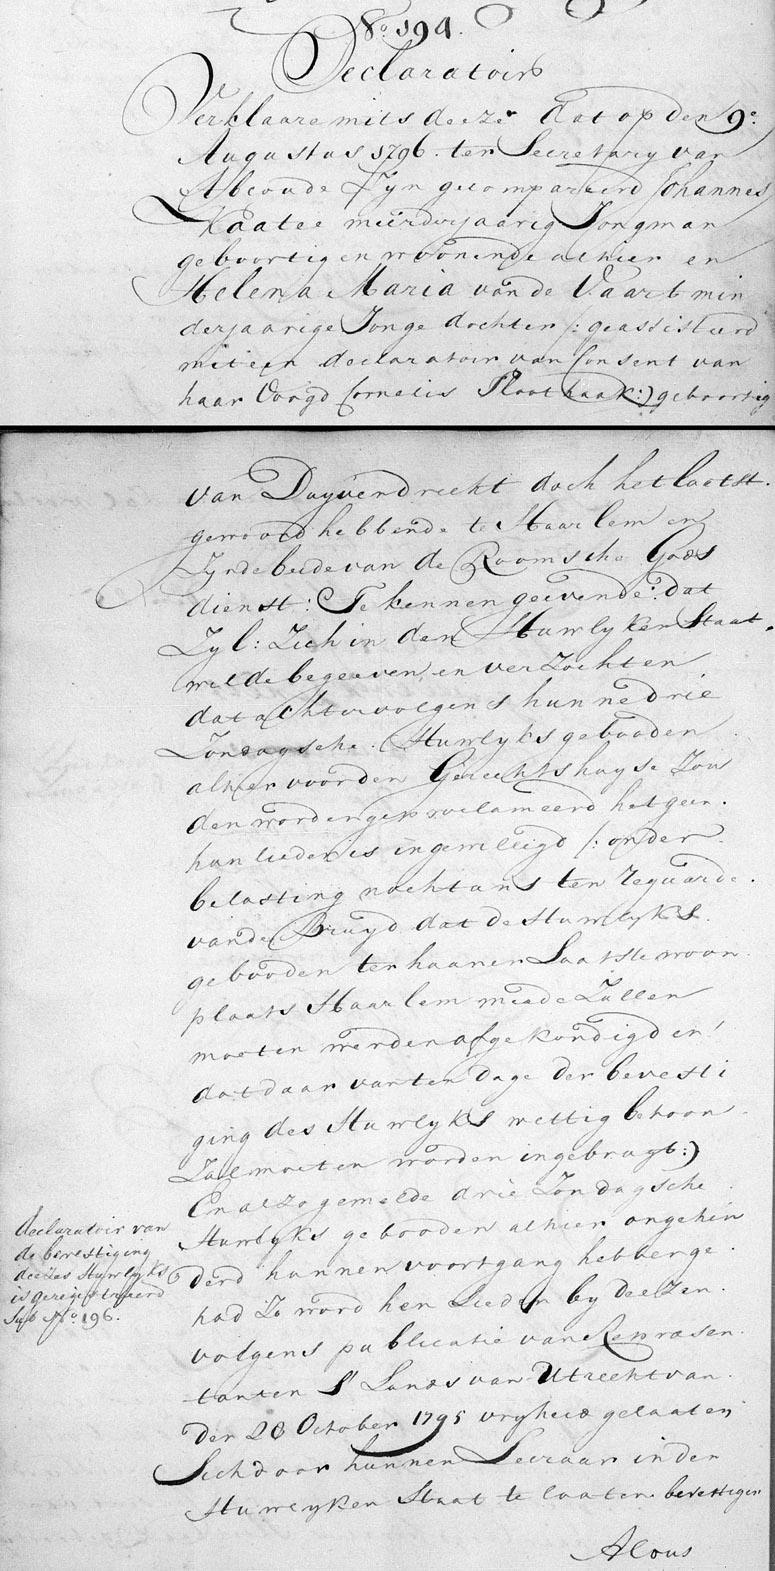 No. 194.
Declaratoir
Verklaare mits deezer dat op den 9e.
Augustus 1796. ter Secretary van
Abcoude Zyn gecompareerd Johannes
Kaatee meerderjaarig Jongman
geboortig en woonende alhier en
Helena Maria van de Vaart min
derjaarige Jonge dochter /: geassisteerd
met een declaratoir van Consent van
haar Voogd Cornelis Sloothaak :/ geboortig
van Duyvendrecht doch het laatst.
gewoond hebbende te Haarlem en
Zynde beide van de Roomsche Gods
dienst: Te kennen geevende: dat
Zyl: Zich in den Huwlyken Staat,
wilde begeeven, en verZochten
dat achtervolgens hunne drie
Zondagsche. Huwlyks gebooden
alhier voor den Gerechtshuyse Zou
den worden geproclameerd hetgeen.
hun lieden is ingewilligd /: onder.
belasting nochtans ten reguarde.
van de Bruyd dat de Huwlyks.
gebooden ter haarer Laatste woon.
plaats Haarlem meede Zullen
moeten werden afgekondigd en!
dat daar van ten dage der bevesti
ging des Huwlyks wettig betoon.
Zal moeten worden ingebragt :/
En alzo gemelde drie Zondagsche.
Huwlyks gebooden alhier ongehin
derd hunnen voortgang hebben ge.
had Zo word hen Lieden by deezen.
volgens publicatie van Repræsen.
tanten S' Lands van Utrecht van.
der 28 October 1795 vryheid gelaaten
Sich door hunnen Leeraar in den
Huwlyken Staat te laaten bevestigen
declaratoir van
de bevestiging
deezes Huwlyks
is geregistreerd
Sub No. 196.